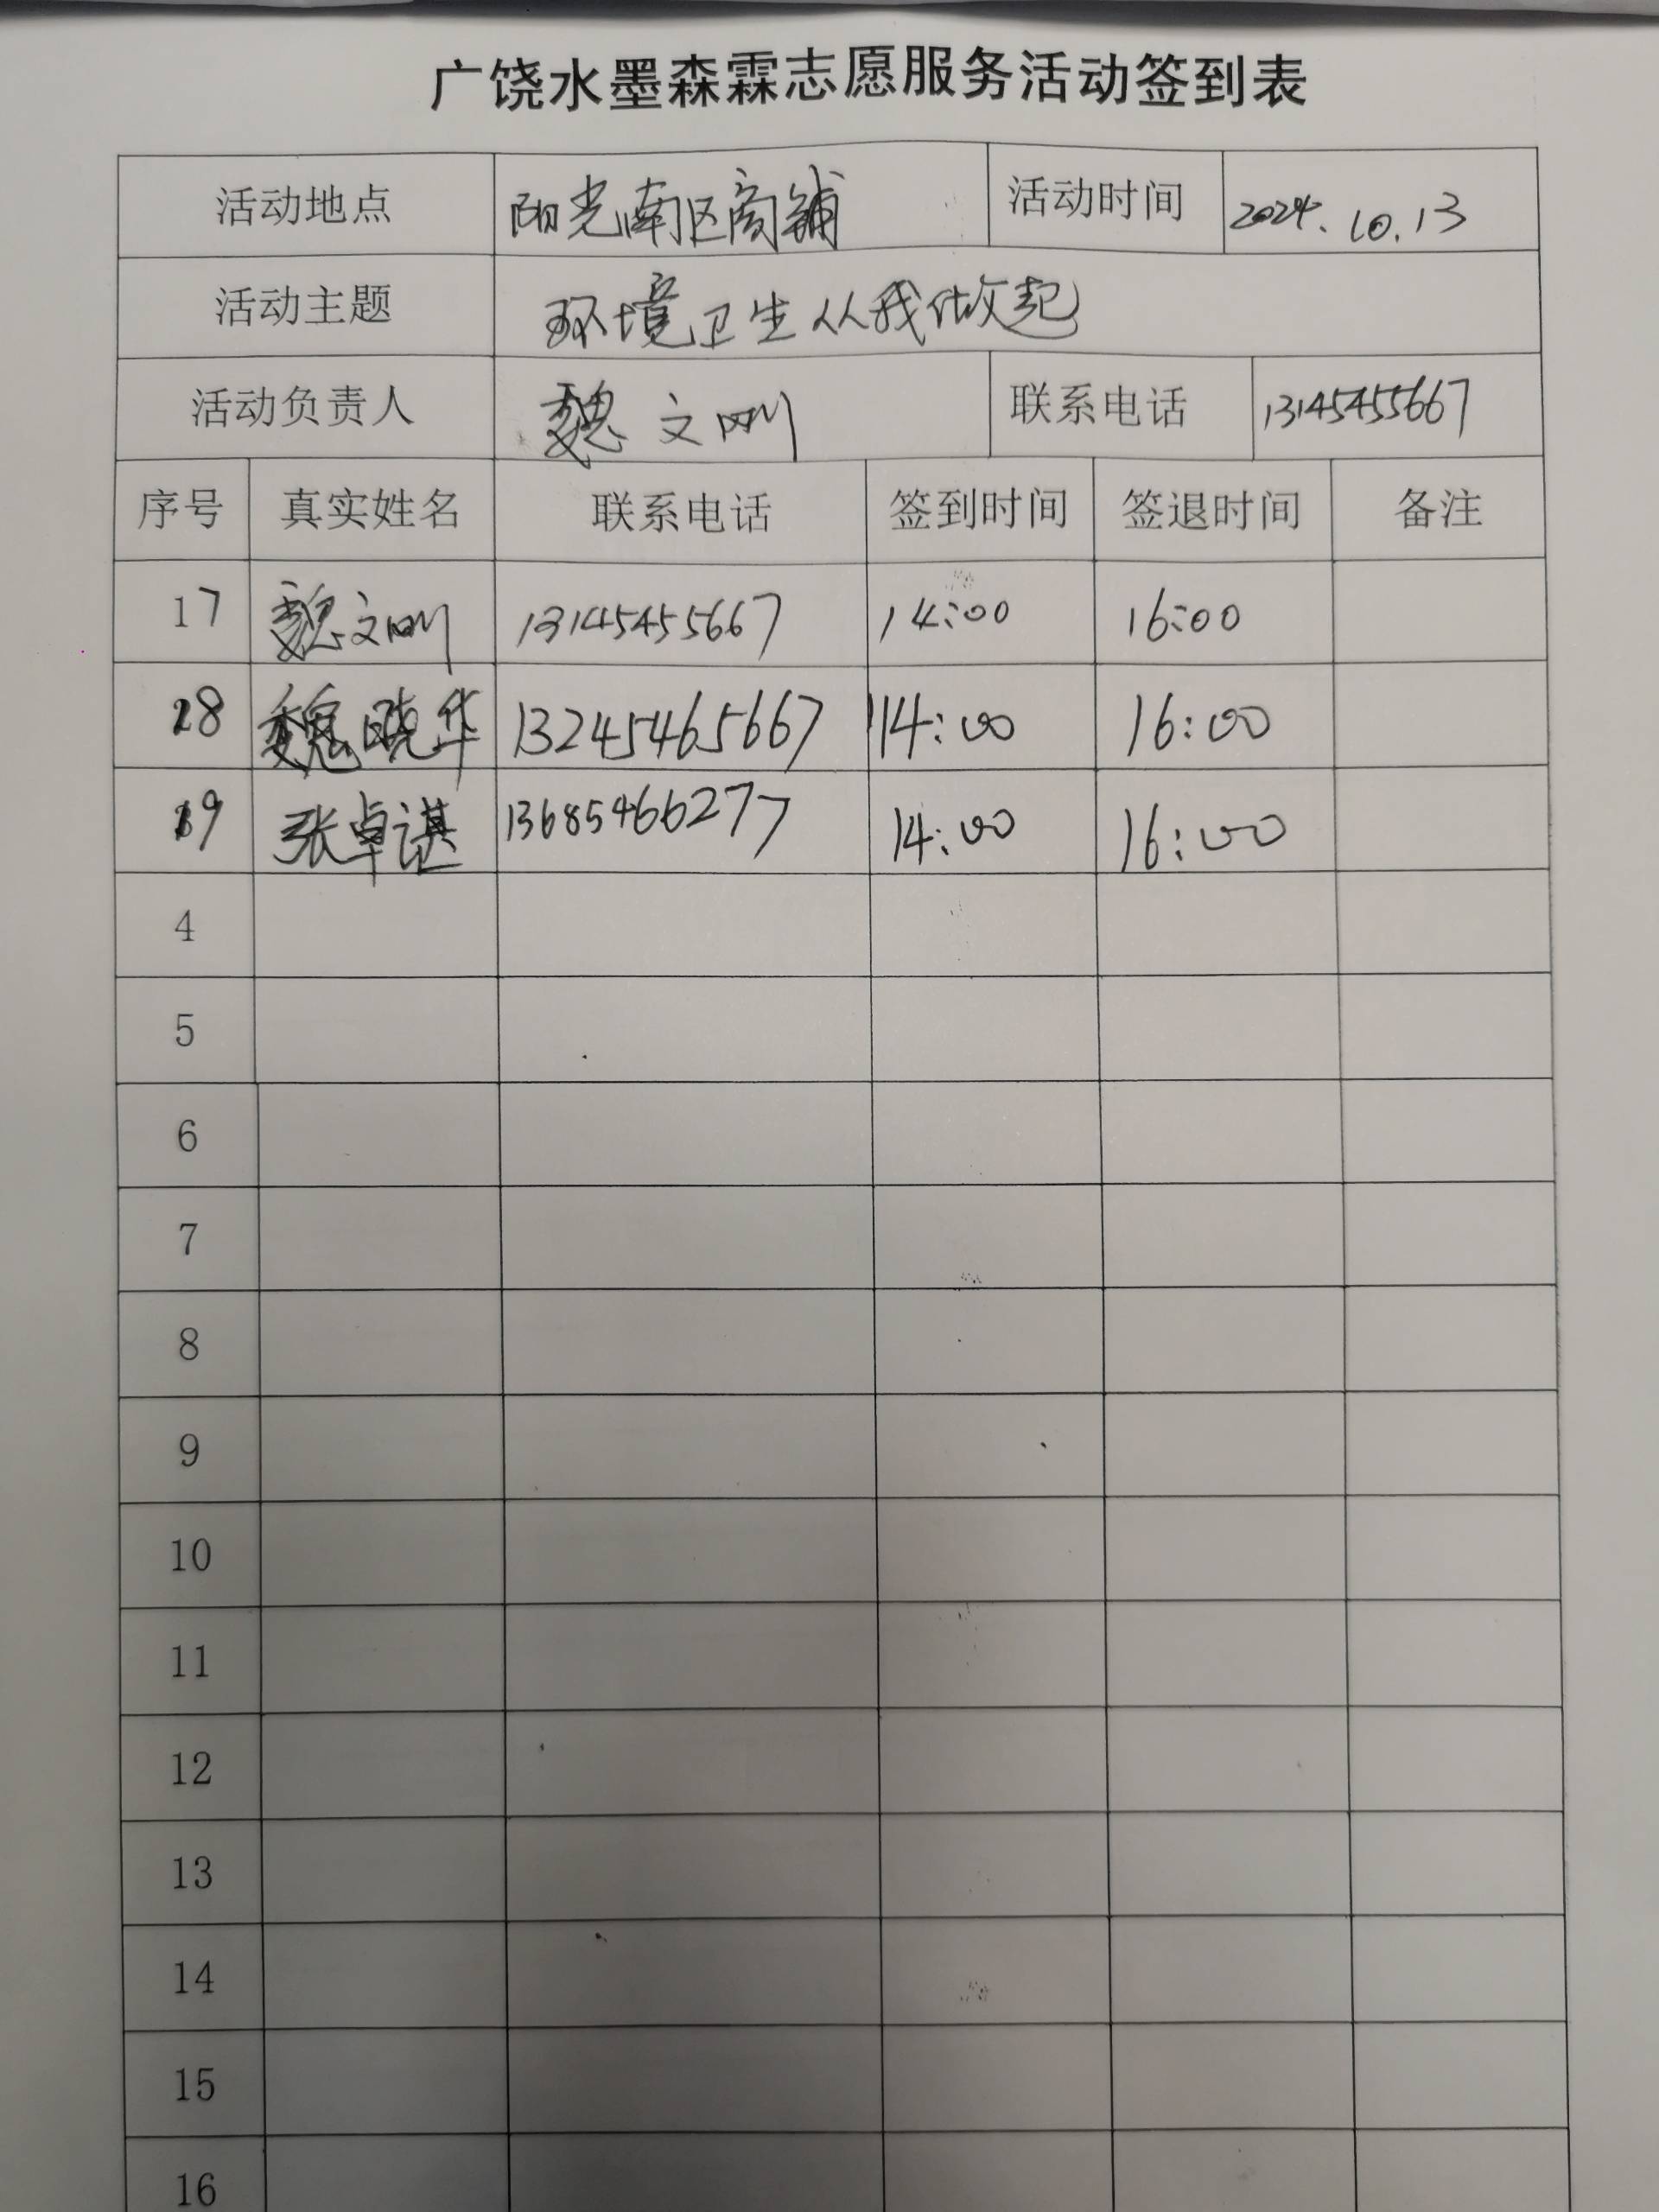 广饶水墨森霖志愿服务活动签到表
活动地点 阳光南区商铺 活动时间 2024.10.13
活动主题 环境卫生从我做起
活动负责人 魏文刚 联系电话 13145455667
序号 真实姓名 联系电话 签到时间 签退时间 备注
17 魏文刚 13145455667 14:00 16:00
18 魏晓华 13245465667 14:00 16:00
19 张卓谌 13685466277 14:00 16:00
4
5
6
7
8
9
10
11
12
13
14
15
16